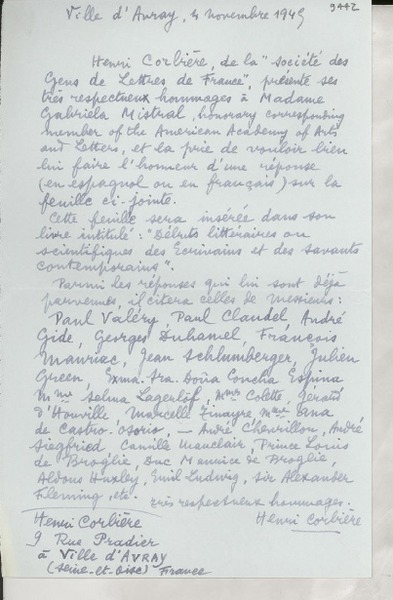 9442
Ville d'Avray, 4 novembre 1945
Henri Corbière, de la "société des
Gens de Lettres de France", présente ses
très respectueux hommages à Madame
Gabriela Mistral, honorary corresponding
member of the American Academy of Arts
and Letters, et la prie de vouloir bien
lui faire l'honneur d'une réponse
(en espagnol ou en français) sur la
feuille ci-jointe.
Cette feuille sera insérée dans son
livre intitulé : "Débuts littéraires ou
scientifiques des Ecrivains et des savants
contemporains".
Parmi les réponses qui lui sont déjà
parvenues, il citera celles de Messieurs :
Paul Valéry, Paul Claudel, André
Gide, Georges Duhamel, François
Mauriac, Jean Schlumberger, Julien
Green, Exma. Sra. Doña Concha Espina
Mme Selma Lagerlöf, Mmes Colette, Gérard
d'Houville, Marcelle Tinayre, Mme Ana
de Castro-Osorio, — André Chevrillon, André
Siegfried, Camille Mauclair, Prince Louis
de Broglie, Duc Maurice de Broglie,
Aldous Huxley, Emil Ludwig, Sir Alexander
Fleming, etc. très respectueux hommages.
Henri Corbière
Henri Corbière
9 Rue Pradier
à Ville d'AVRAY
(Seine-et-Oise) France